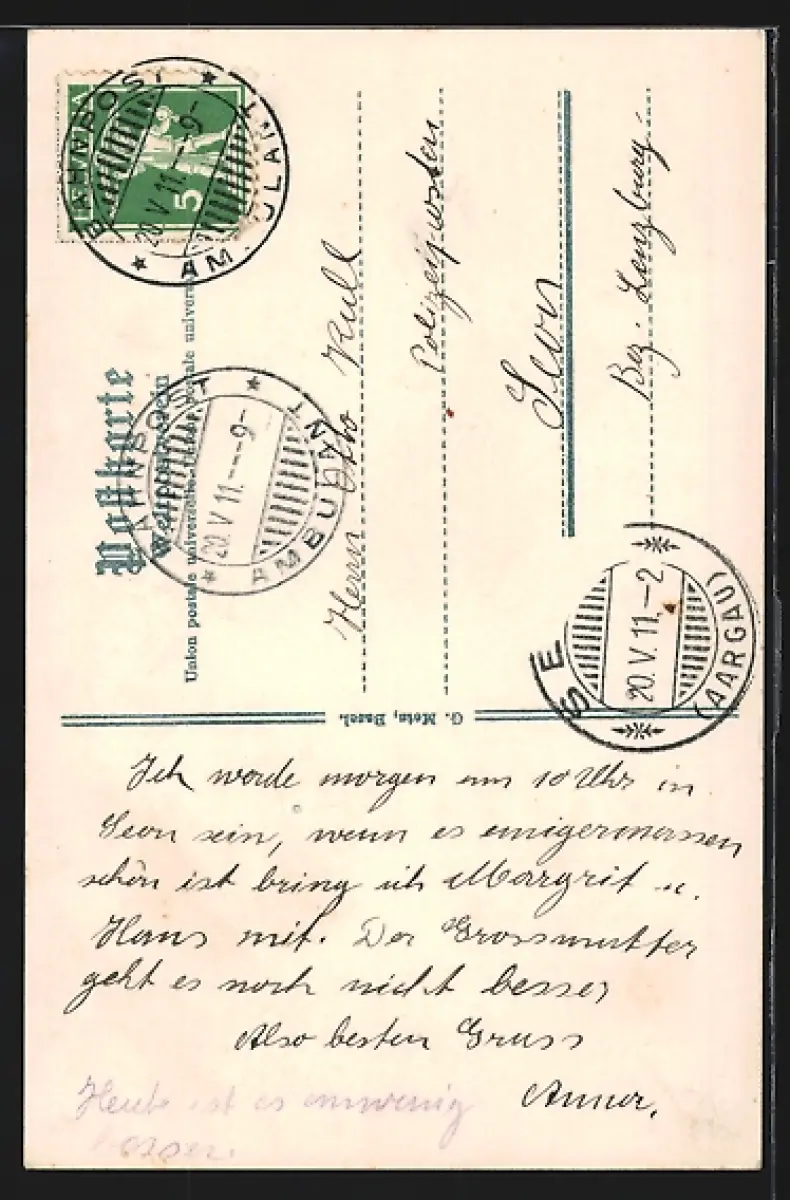 HELVETIA
5
BAHNPOST
AMBULANT
20.V.11.–9–
Postkarte
Weltpostverein
Union postale universelle
BAHNPOST
AMBULANT
20.V.11.–––9–
Herrn Otto Rull
Seon
Bez. Lenzburg.
(AARGAU)
20.V.11.–2
G. Metz, Basel.
Ich werde morgen um 10 Uhr in
Seon sein, wenn es einigermassen
schön ist bring ich Margrit u.
Hans mit. Der Grossmutter
geht es noch nicht besser
Also besten Gruss
Heute ist es einwenig
besser.